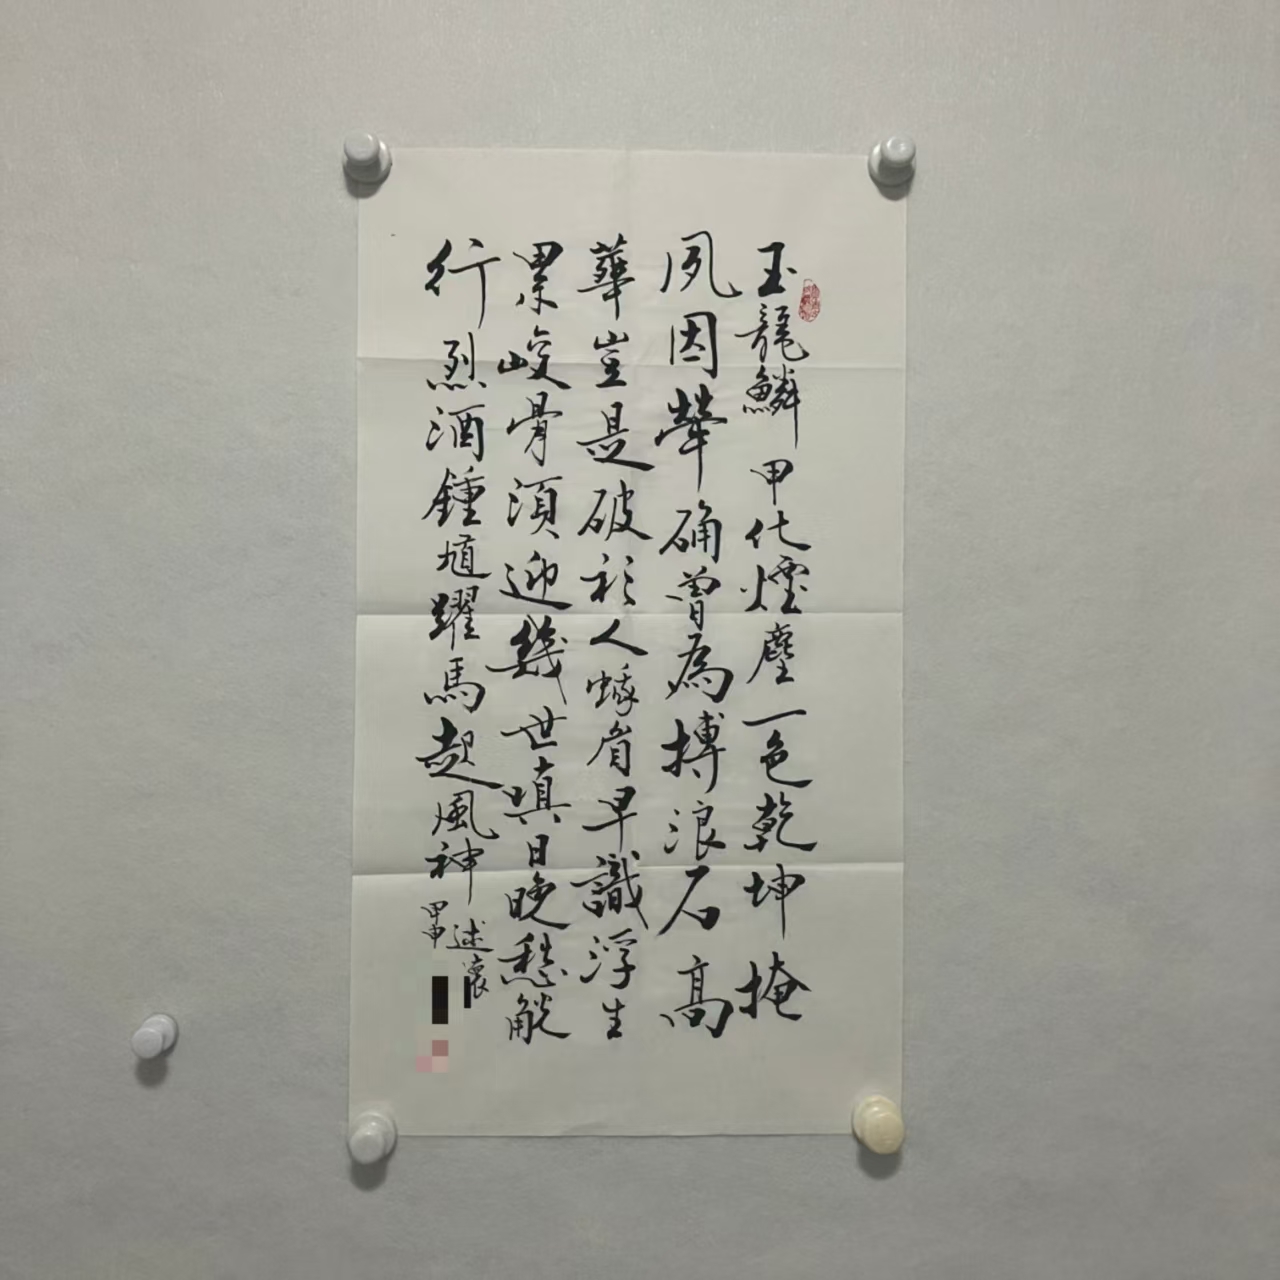 玉龍鱗甲化煙塵一色乾坤掩
夙因犖确曾為搏浪石高
華豈是破衫人蛾眉早識浮生
累峻骨須迎幾世嗔日晚愁觥
行烈酒鍾馗躍馬起風神
述懷
甲申